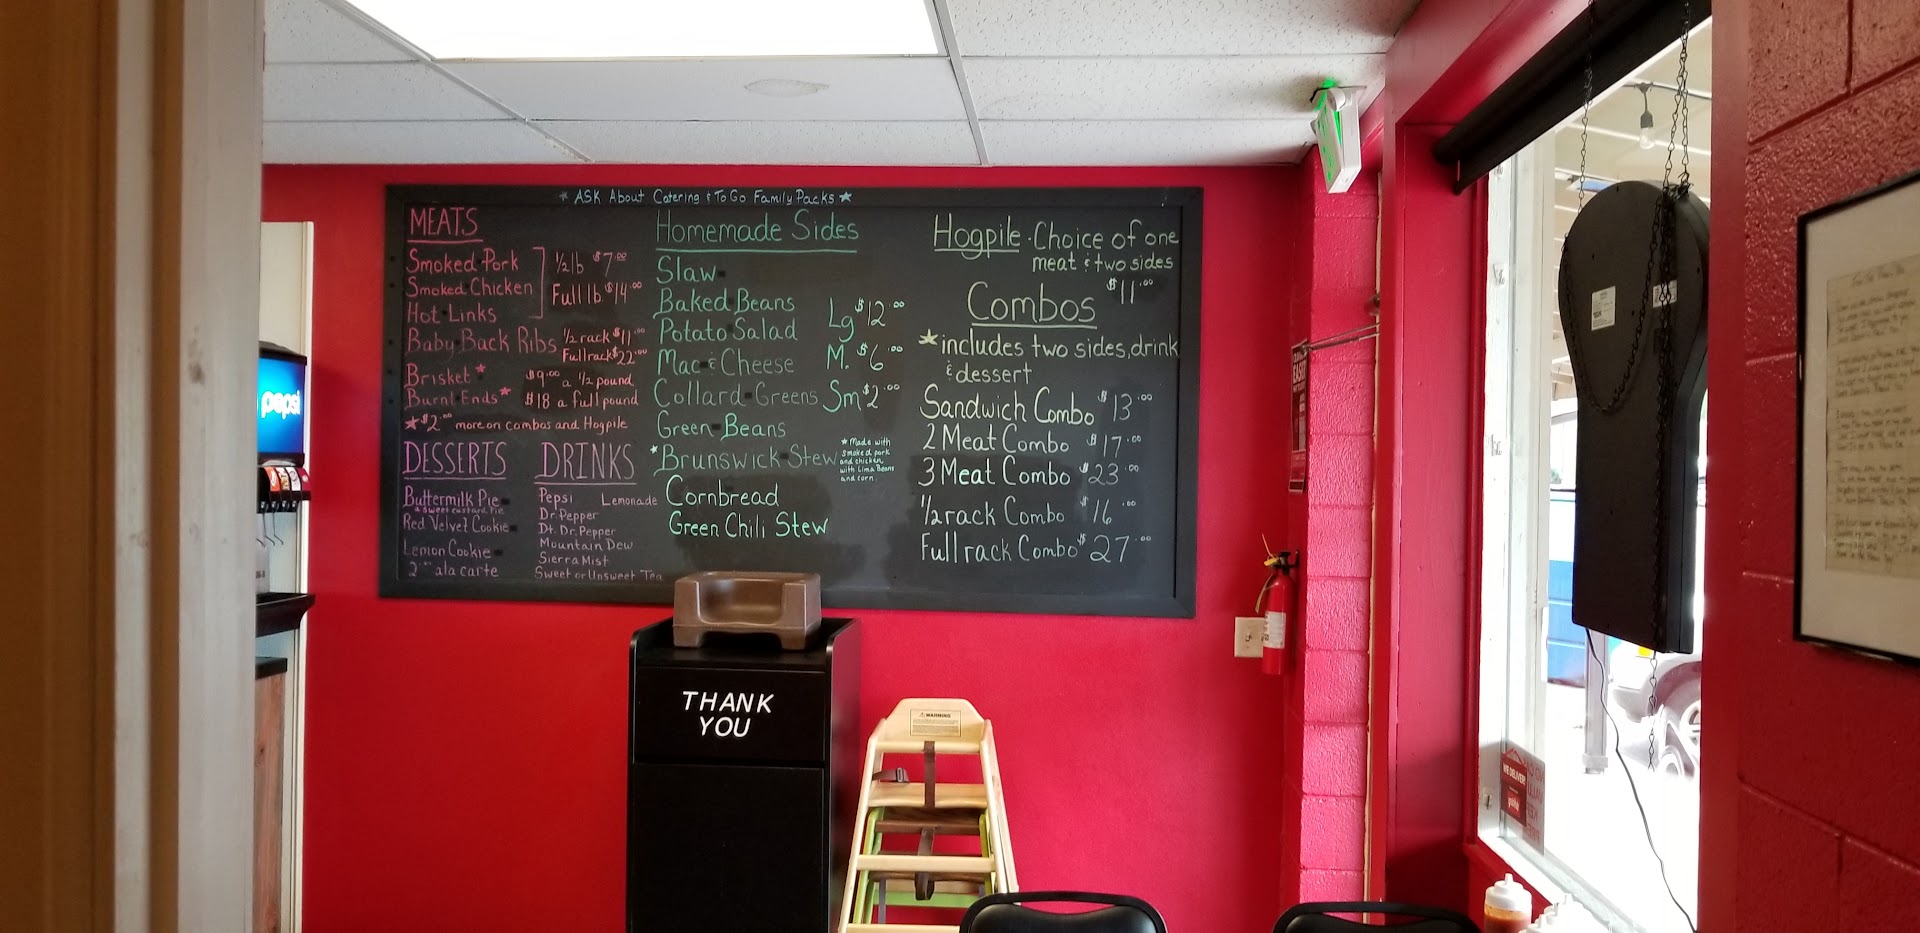 * ASK About Catering & To Go Family Packs *
MEATS
Smoked Pork
Smoked Chicken
Hot Links
1/2 lb $7.00
Full lb $14.00
Baby Back Ribs 1/2 rack $11.00
Full rack $22.00
Brisket *
Burnt Ends *
$9.00 a 1/2 pound
$18 a full pound
* $2.00 more on combos and Hogpile
DESSERTS
Buttermilk Pie
a sweet custard pie
Red Velvet Cookie
Lemon Cookie
2.00 ala carte
DRINKS
Pepsi Lemonade
Dr. Pepper
Dt. Dr. Pepper
Mountain Dew
Sierra Mist
Sweet or Unsweet Tea
Homemade Sides
Slaw
Baked Beans
Potato Salad
Mac & Cheese
Collard Greens
Green Beans
* Brunswick Stew
* Made with
smoked pork
and chicken
with Lima Beans
and corn
Cornbread
Green Chili Stew
Lg $12.00
M. $6.00
Sm $2.00
Hogpile - Choice of one
meat & two sides
$11.00
Combos
* includes two sides, drink
& dessert
Sandwich Combo $13.00
2 Meat Combo $17.00
3 Meat Combo $23.00
1/2 rack Combo $16.00
Full rack Combo $27.00
pepsi
THANK
YOU
WARNING
WE DELIVER!